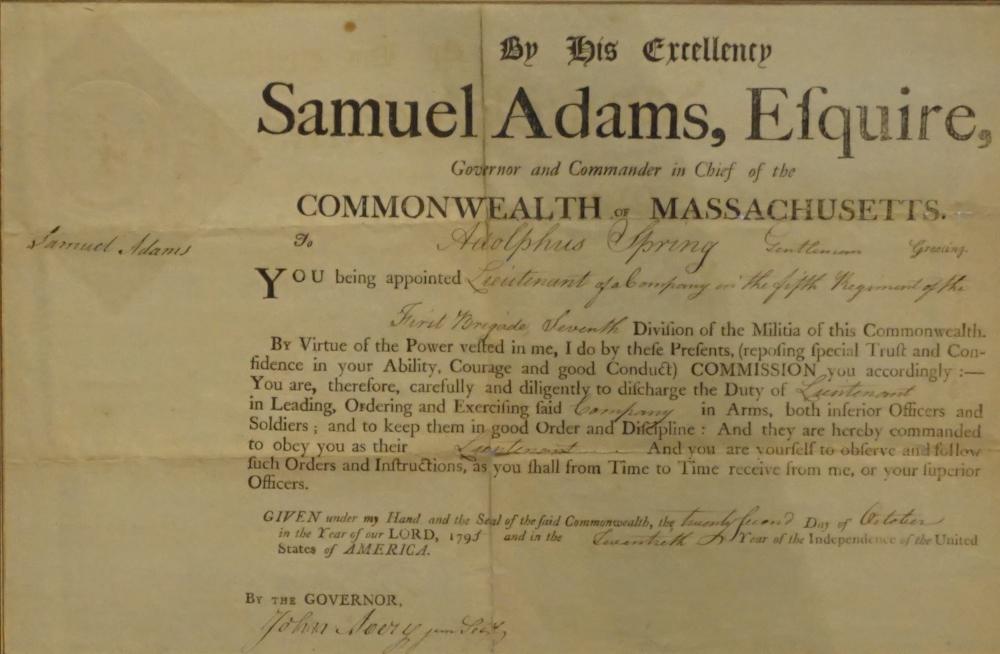 By His Excellency
Samuel Adams, Eſquire,
Governor and Commander in Chief of the
COMMONWEALTH OF MASSACHUSETTS.
Samuel Adams
To Adolphus Spring Gentleman Greeting.
YOU being appointed Lieutenant of a Company in the fifth Regiment of the
First Brigade, Seventh Diviſion of the Militia of this Commonwealth.
BY Virtue of the Power veſted in me, I do by theſe Preſents, (repoſing ſpecial Truſt and Con-
fidence in your Ability, Courage and good Conduct) COMMISSION you accordingly :—
You are, therefore, carefully and diligently to diſcharge the Duty of Lieutenant
in Leading, Ordering and Exerciſing ſaid Company in Arms, both inferior Officers and
Soldiers ; and to keep them in good Order and Diſcipline : And they are hereby commanded
to obey you as their Lieutenant And you are yourſelf to obſerve and follow
ſuch Orders and Inſtructions, as you ſhall from Time to Time receive from me, or your ſuperior
Officers.
GIVEN under my Hand and the Seal of the ſaid Commonwealth, the twenty second Day of October
in the Year of our LORD, 1795 and in the Twentieth Year of the Independence of the United
States of AMERICA.
BY THE GOVERNOR,
John Avery jun Secy